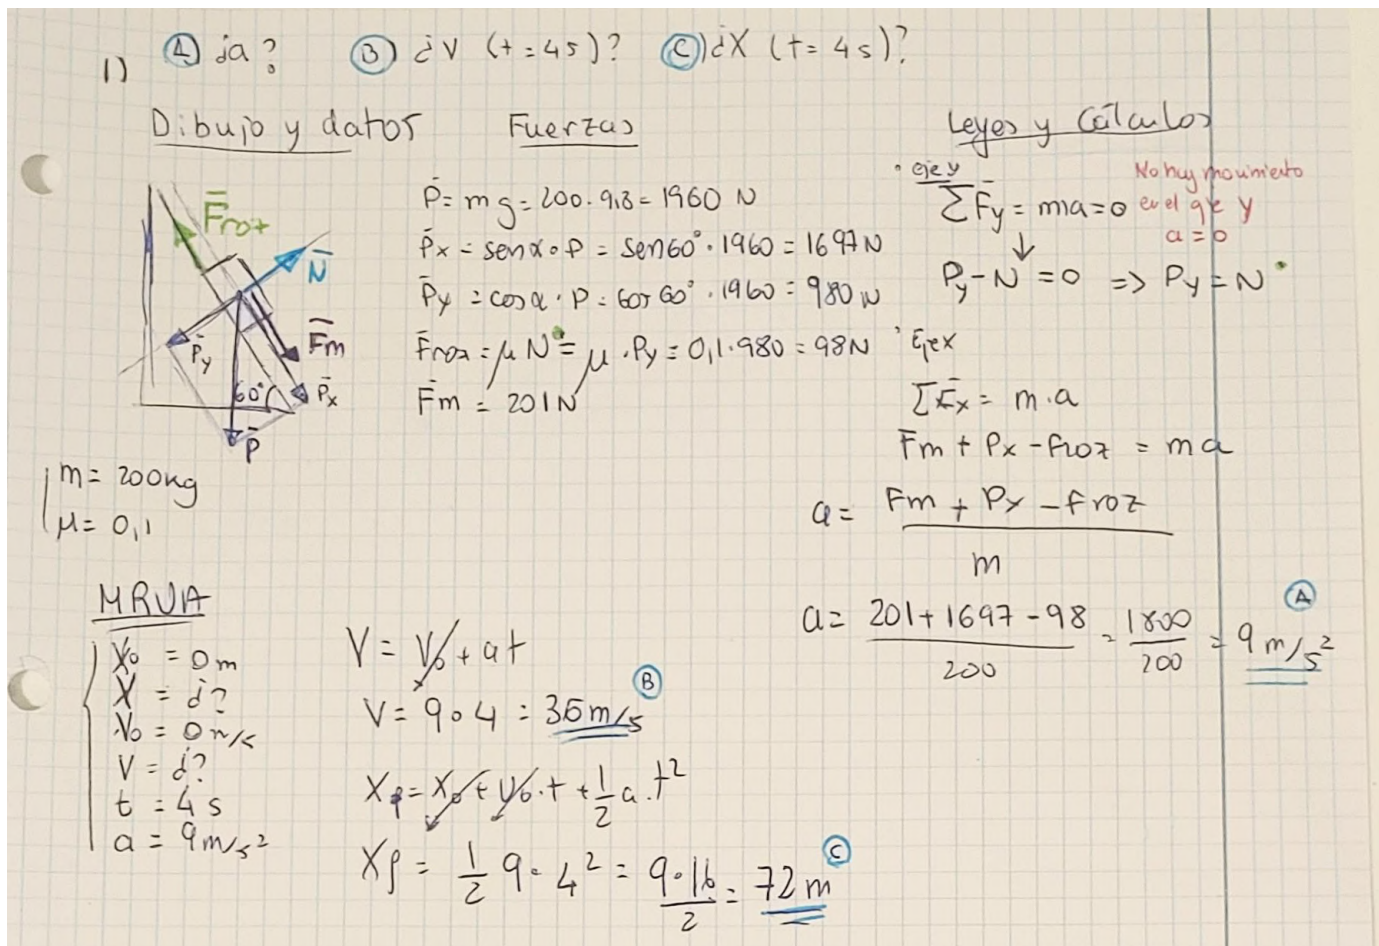 1) A) ¿a? B) ¿V (t=4s)? C) ¿X (t=4s)?
Dibujo y datos
F̄roz
N̄
P̄y
F̄m
60°
P̄x
P̄
m= 200kg
μ= 0,1
Fuerzas
P̄= mg= 200·9,8= 1960 N
P̄x = senα·P = sen60°·1960= 1697N
P̄y = cosα·P= cos 60°·1960= 980N
F̄roz = μN = μ·Py= 0,1·980= 98N
F̄m = 201N
Leyes y Cálculos
· eje y
ΣF̄y= ma=0
No hay movimiento
en el eje y
a=0
↓
Py-N=0 => Py=N
· Eje x
ΣF̄x= m·a
Fm + Px - Froz = ma
a= Fm + Px - Froz / m
a= 201+1697-98 / 200 = 1800 / 200 = 9 m/s² A
MRUA
X₀ = 0m
X = ¿?
V₀ = 0m/s
V = ¿?
t = 4s
a = 9m/s²
V= V₀+at
V= 9·4= 36m/s B
Xf= X₀+V₀·t+1/2 a·t²
Xf= 1/2 9·4²= 9·16/2= 72m C